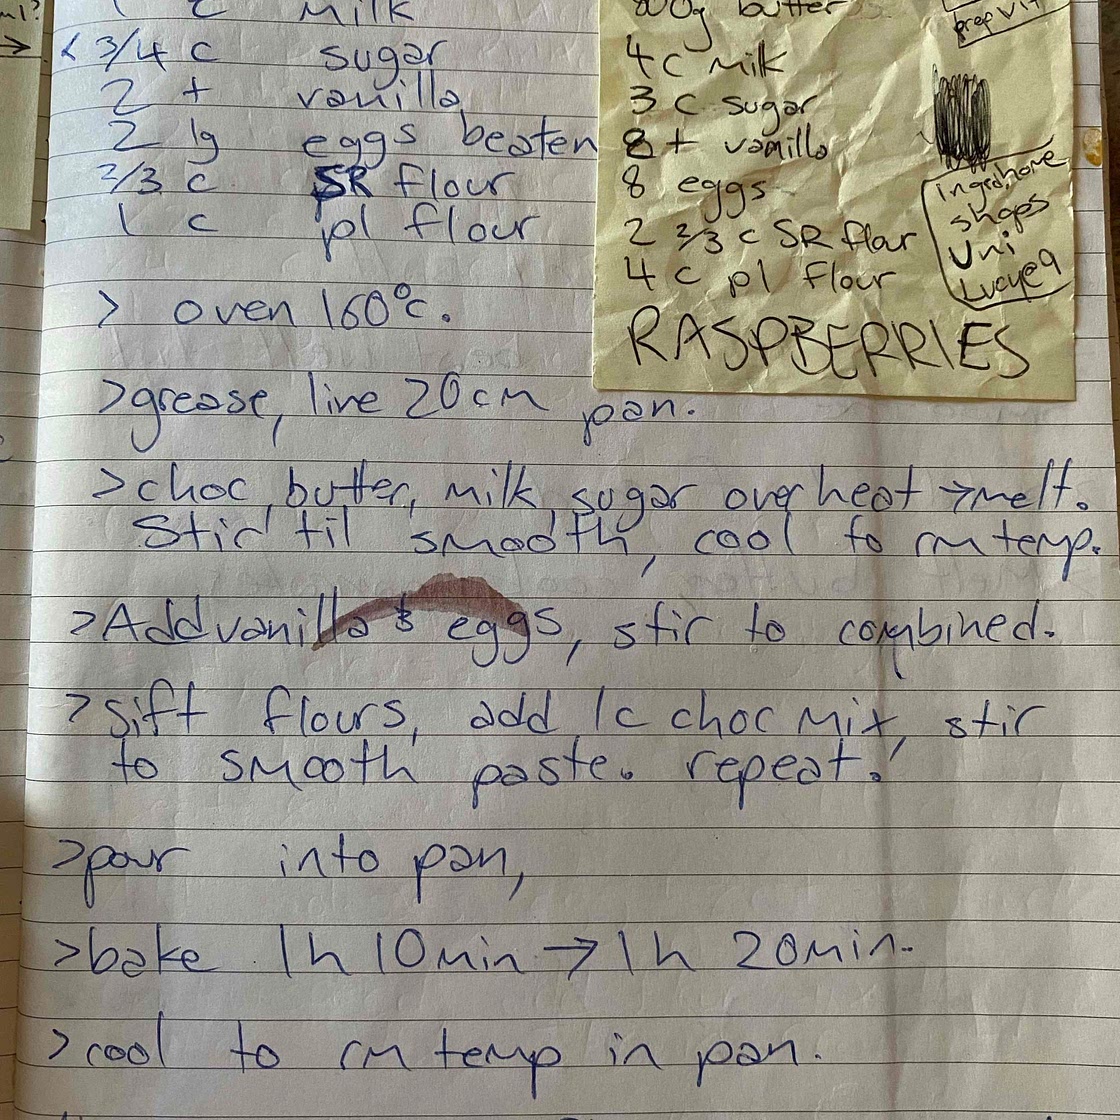 1 c milk
< 3/4 c sugar
2 t vanilla
2 lg eggs beaten
2/3 c SR flour
1 c pl flour
> oven 160°c.
>grease, line 20cm pan.
>choc, butter, milk, sugar over heat →melt.
Stir til smooth, cool to rm temp.
>Add vanilla & eggs, stir to combined.
>sift flours, add 1c choc mix, stir
to smooth paste. repeat.
>pour into pan,
>bake 1h 10min → 1h 20min.
>cool to rm temp in pan.
800g butter
4c milk
3 c sugar
8 t vanilla
8 eggs
2 2/3 c SR flour
4 c pl flour
RASPBERRIES
prep
shops
Uni